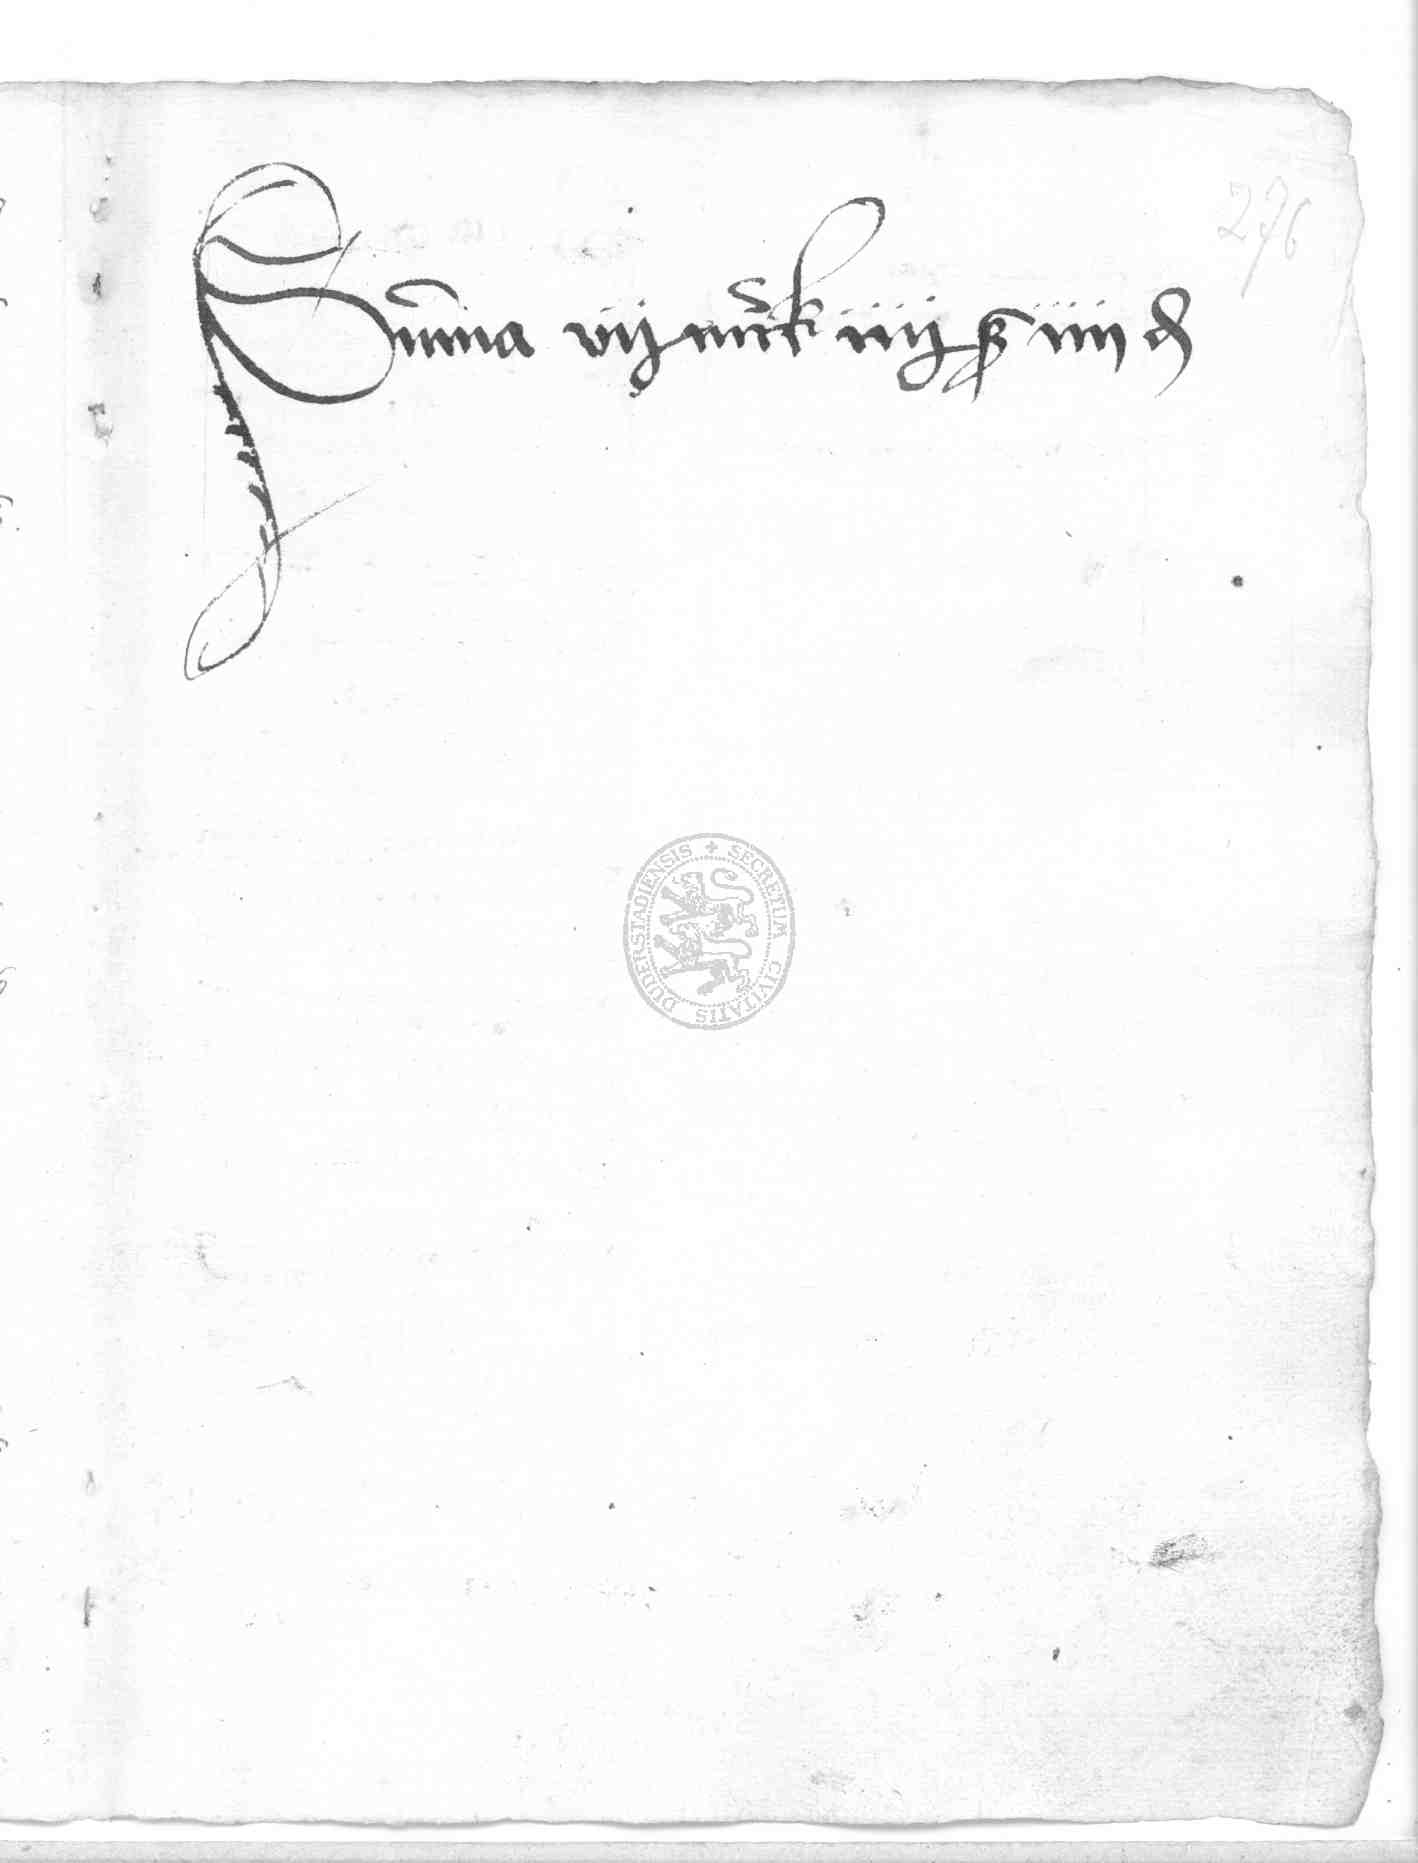 276
Suma vij mrk iiij ß iiij ₰
SECRETUM CIVITATIS DUDERSTADIENSIS